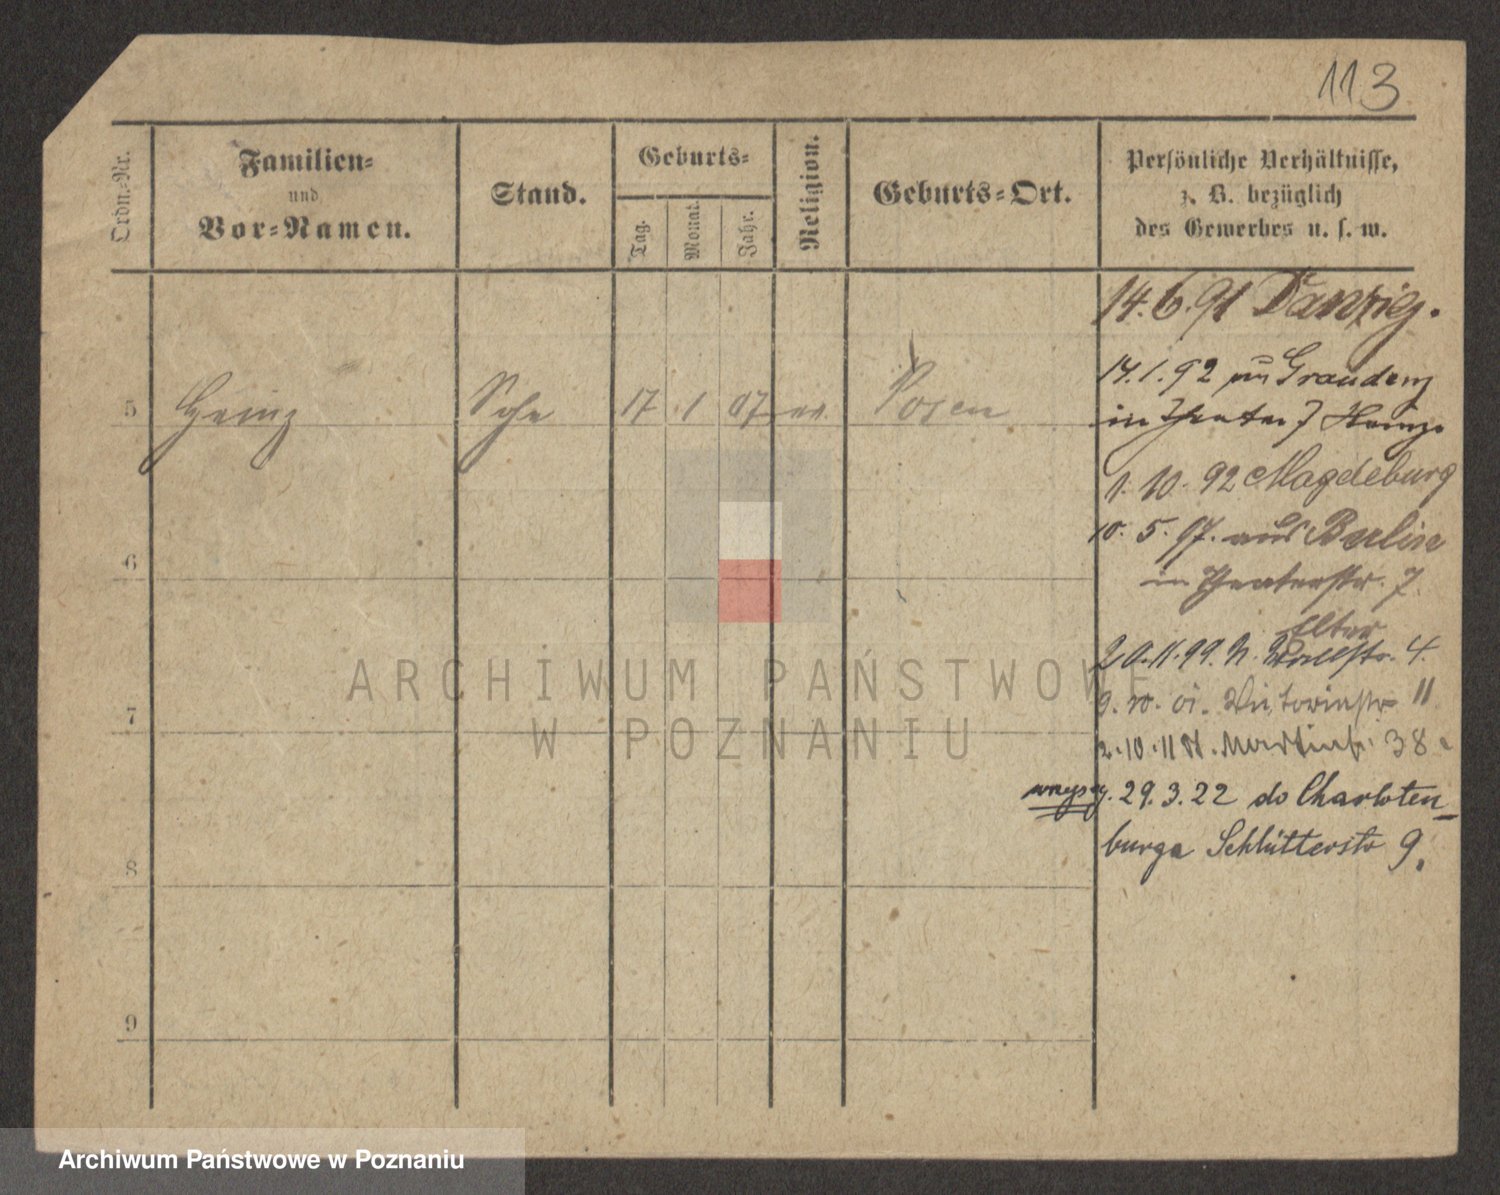 113
Ordn.-Nr.
Familien-
und
Vor-Namen.
Stand.
Geburts-
Tag.
Monat.
Jahr.
Religion.
Geburts-Ort.
Persönliche Verhältnisse,
z. B. bezüglich
des Gewerbes u. s. w.
14.6.91 Danzig.
14.1.92 Graudenz
in 7
5 Heinz Sohn 17 1 07 Posen
1.10.92 Magdeburg
10.5.97. aus Berlin
6
in Theaterstr. 7.
20.11.99. n. Wallstr. 4.
9.10.01. Viktoriastr 11
7
2.10.11 St. Martinstr. 38
29.3.22 do Charloten_
burga Schlütterstr 9.
8
9
ARCHIWUM PAŃSTWOWE
W POZNANIU
Archiwum Państwowe w Poznaniu